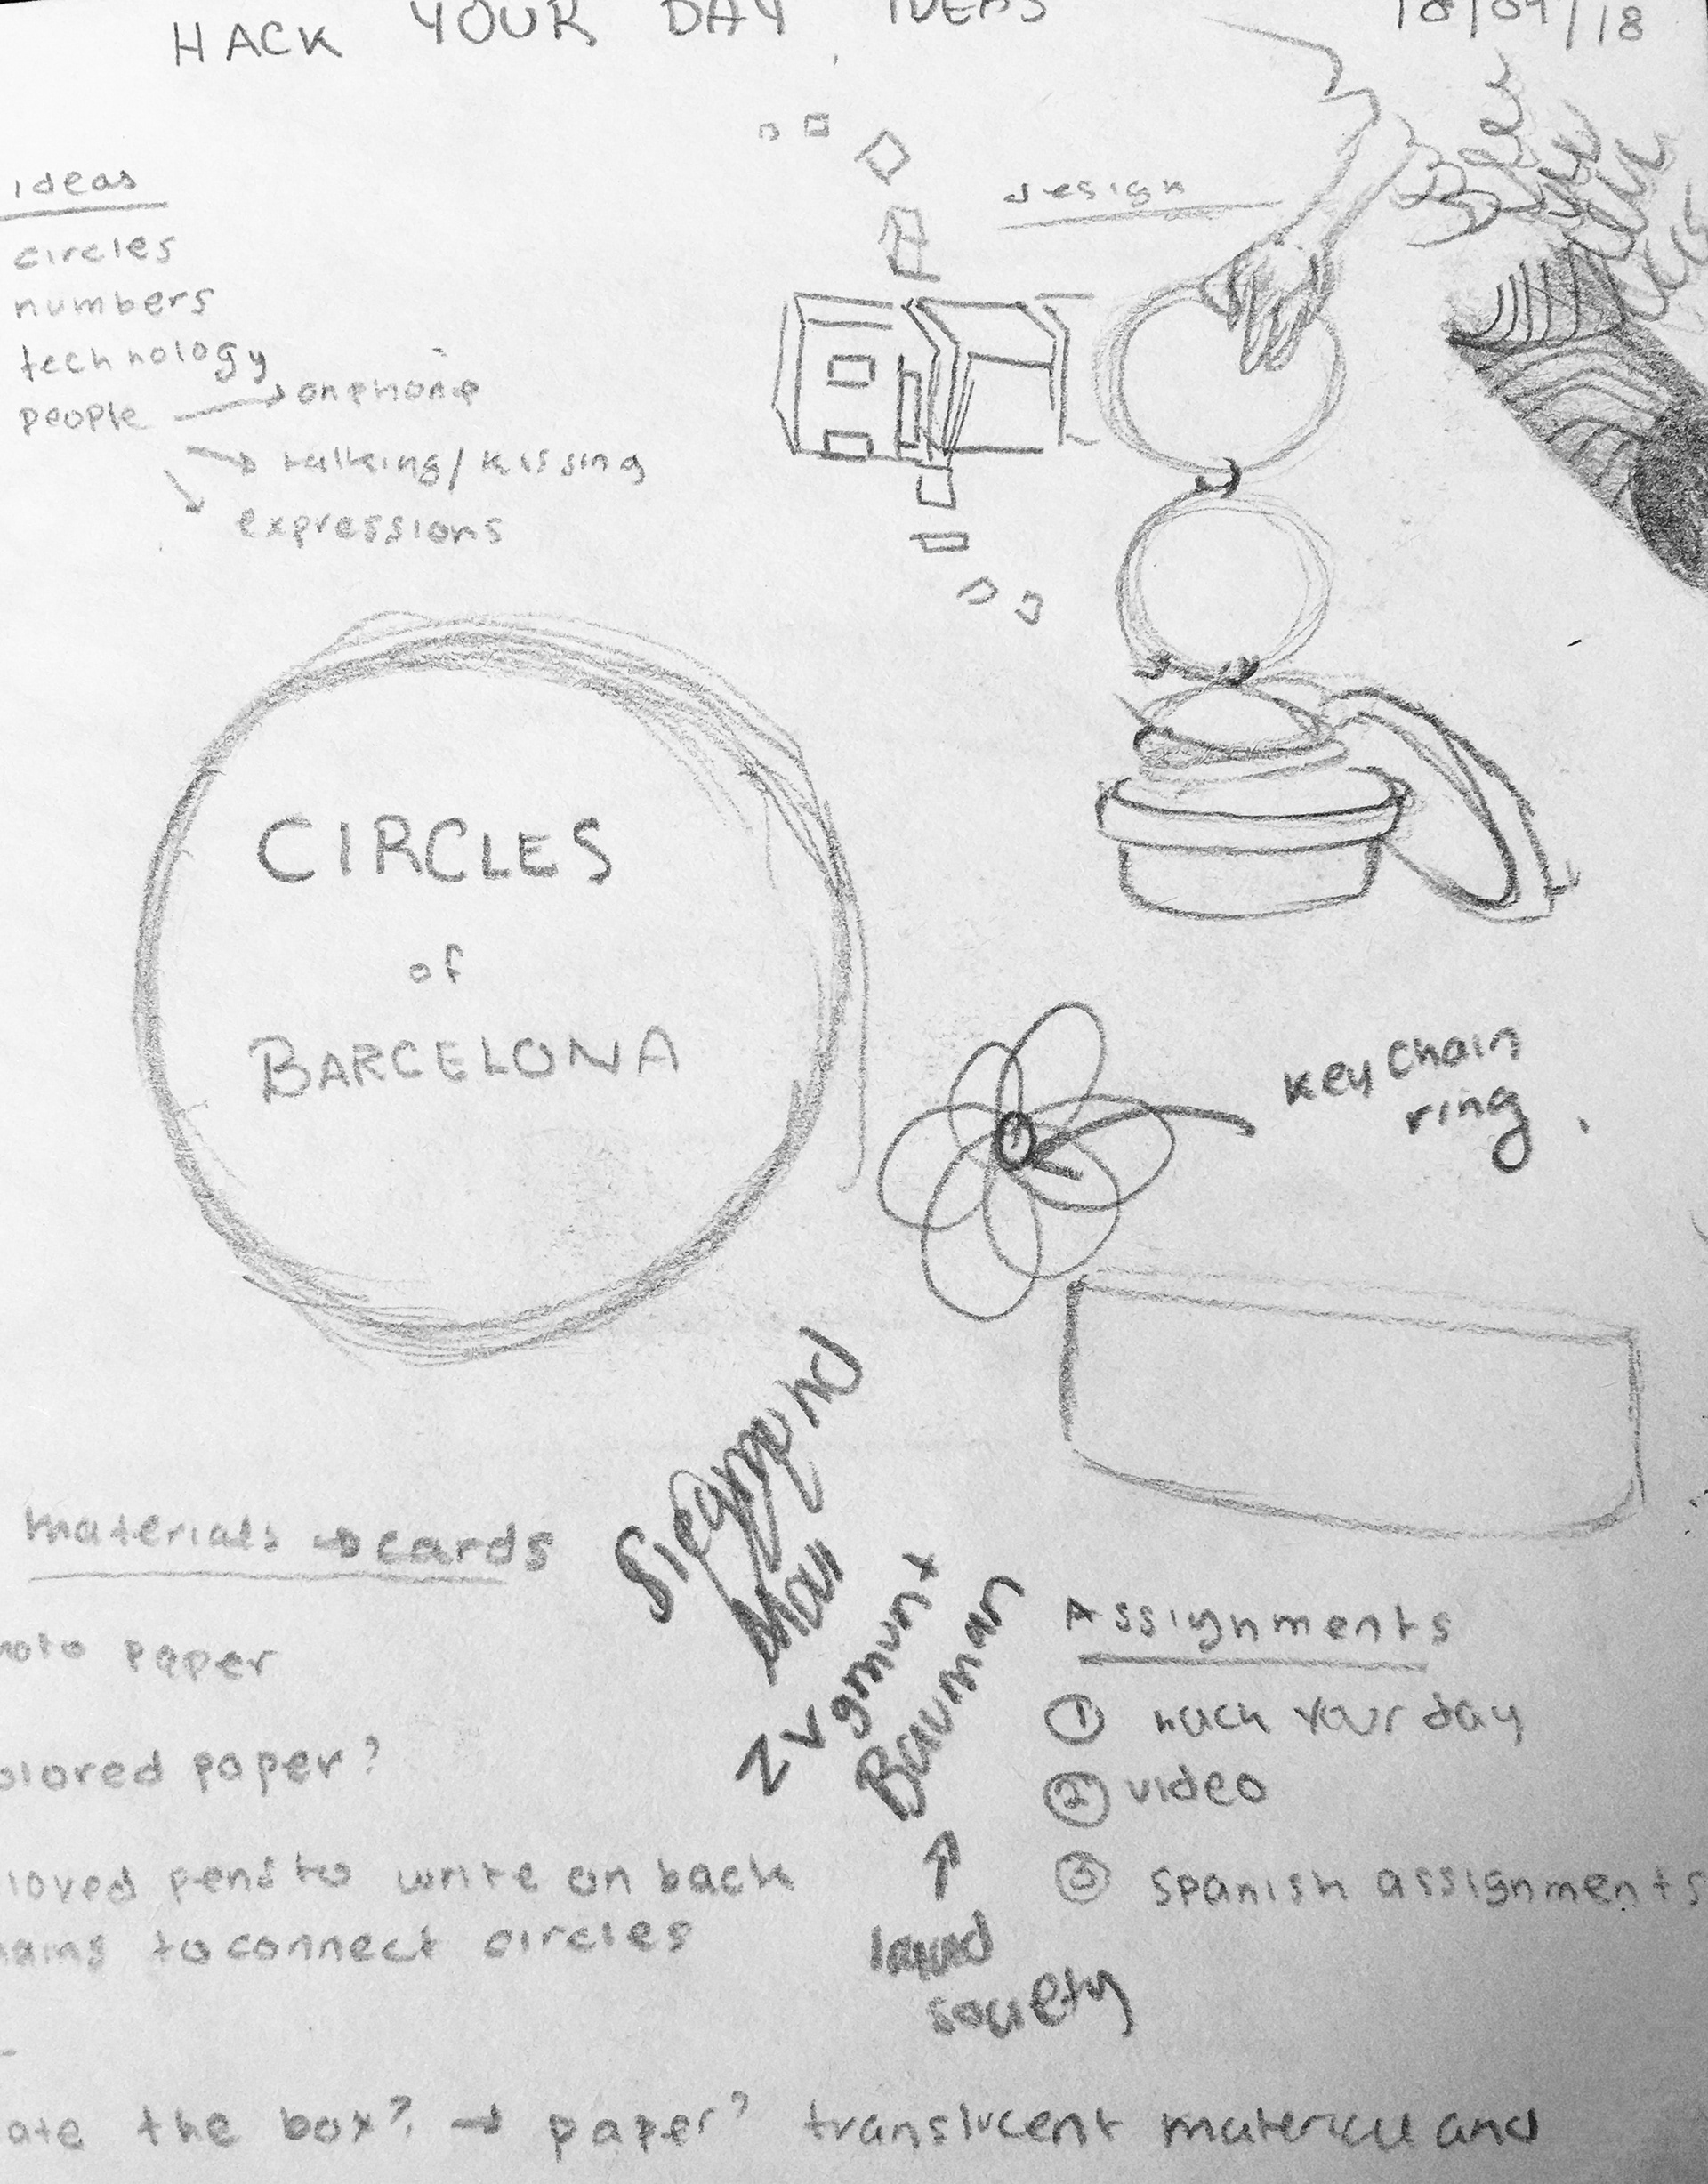 HACK YOUR DAY IDEAS
18/09/18
ideas
circles
numbers
technology
people → on phone
→ talking/kissing
→ expressions
design
CIRCLES
of
BARCELONA
key chain
ring
materials → cards
paper
colored paper?
pens to write on back
to connect circles
Zygmunt
Bauman
society
Assignments
① hack your day
② video
③ Spanish assignments
ate the box? → paper? translucent material and